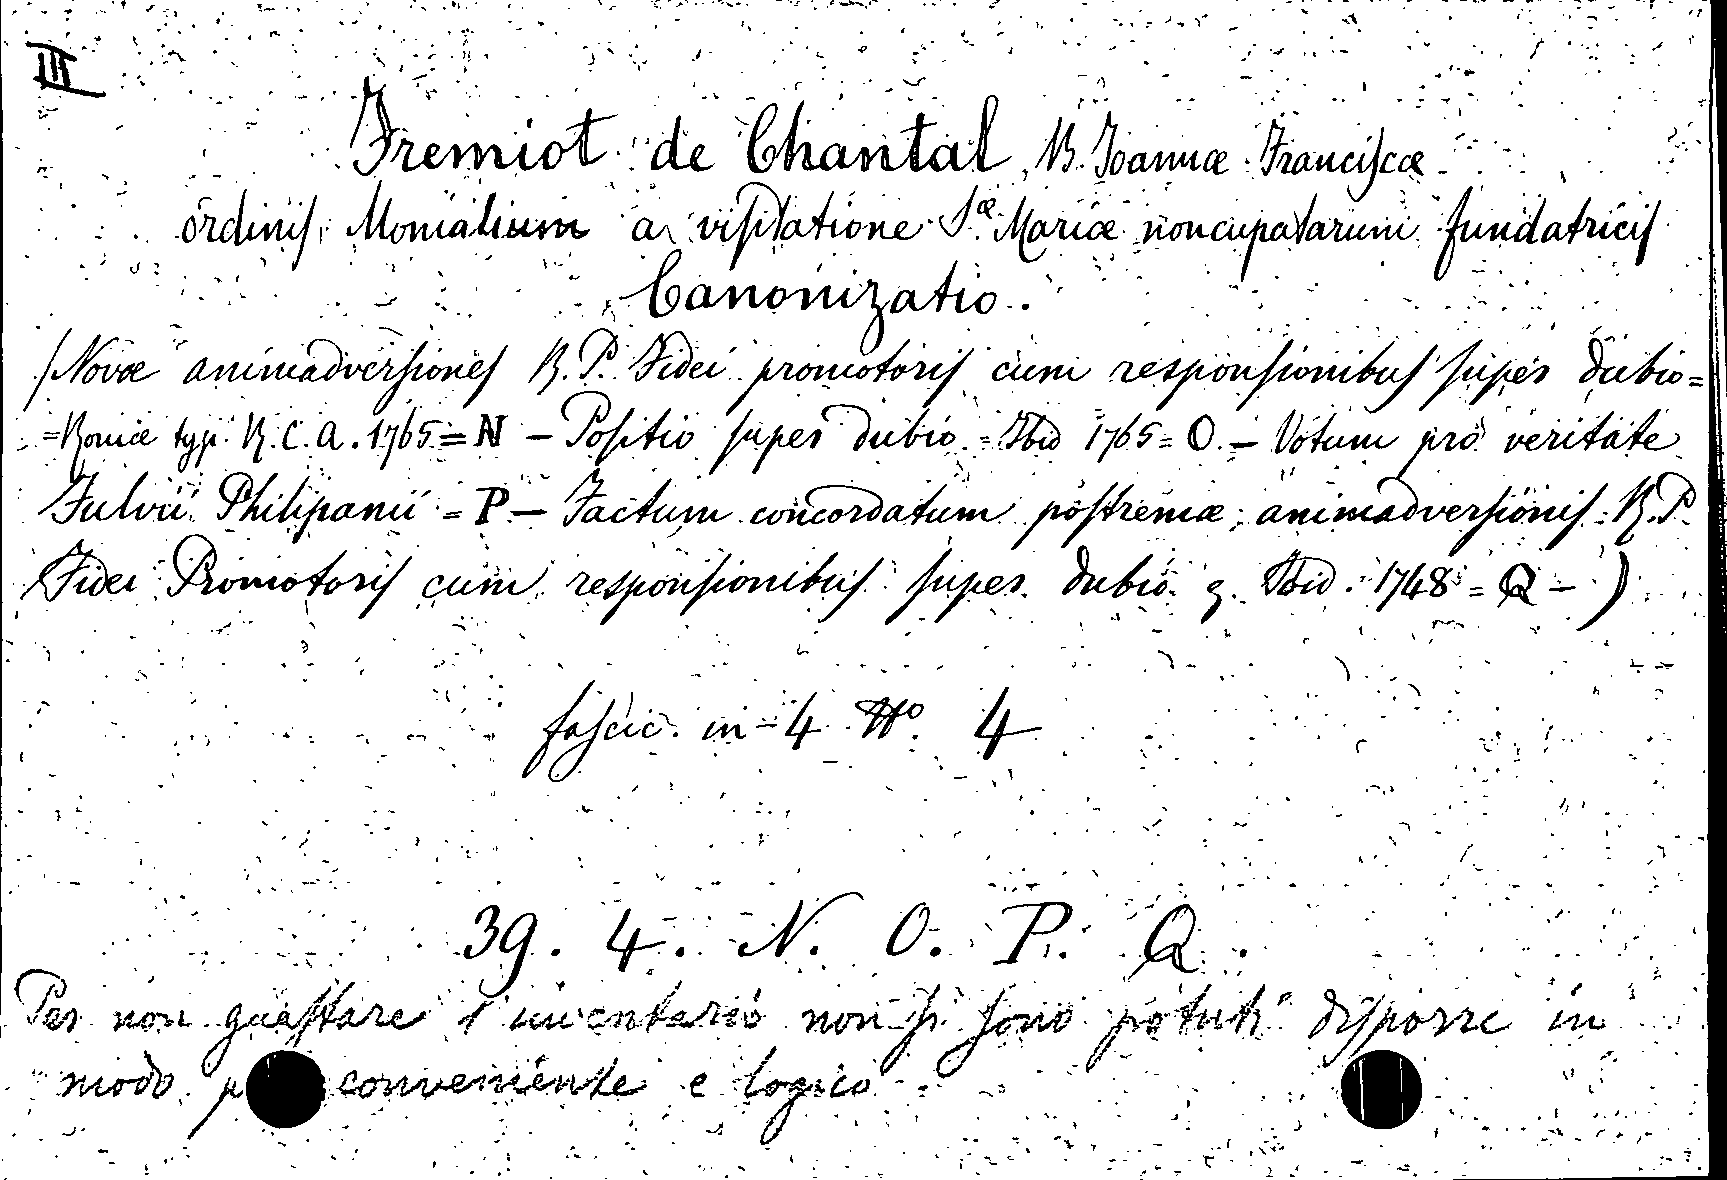 III
Fremiot de Chantal B. Joannæ Franciscæ
ordinis Monialium a visitatione Sæ Mariæ noncupatarum fundatricis
Canonizatio.
(Novæ animadversiones R. P. Fidei promotoris cum responsionibus super dubio=
=Romæ typ. R. C. A. 1765 = N – Positio super dubio = Ibid 1765 = O. – Votum pro veritate
Fulvii Philipanii = P – Factum concordatum postremæ animadversionis R. P.
Fidei Promotoris cum responsionibus super dubio 3. Ibid. 1748 = Q – )
fascic. in-4 No. 4
39. 4. N. O. P. Q.
Per non guastare l'inventario non si sono potuti disporre in
modo p conveniente e logico